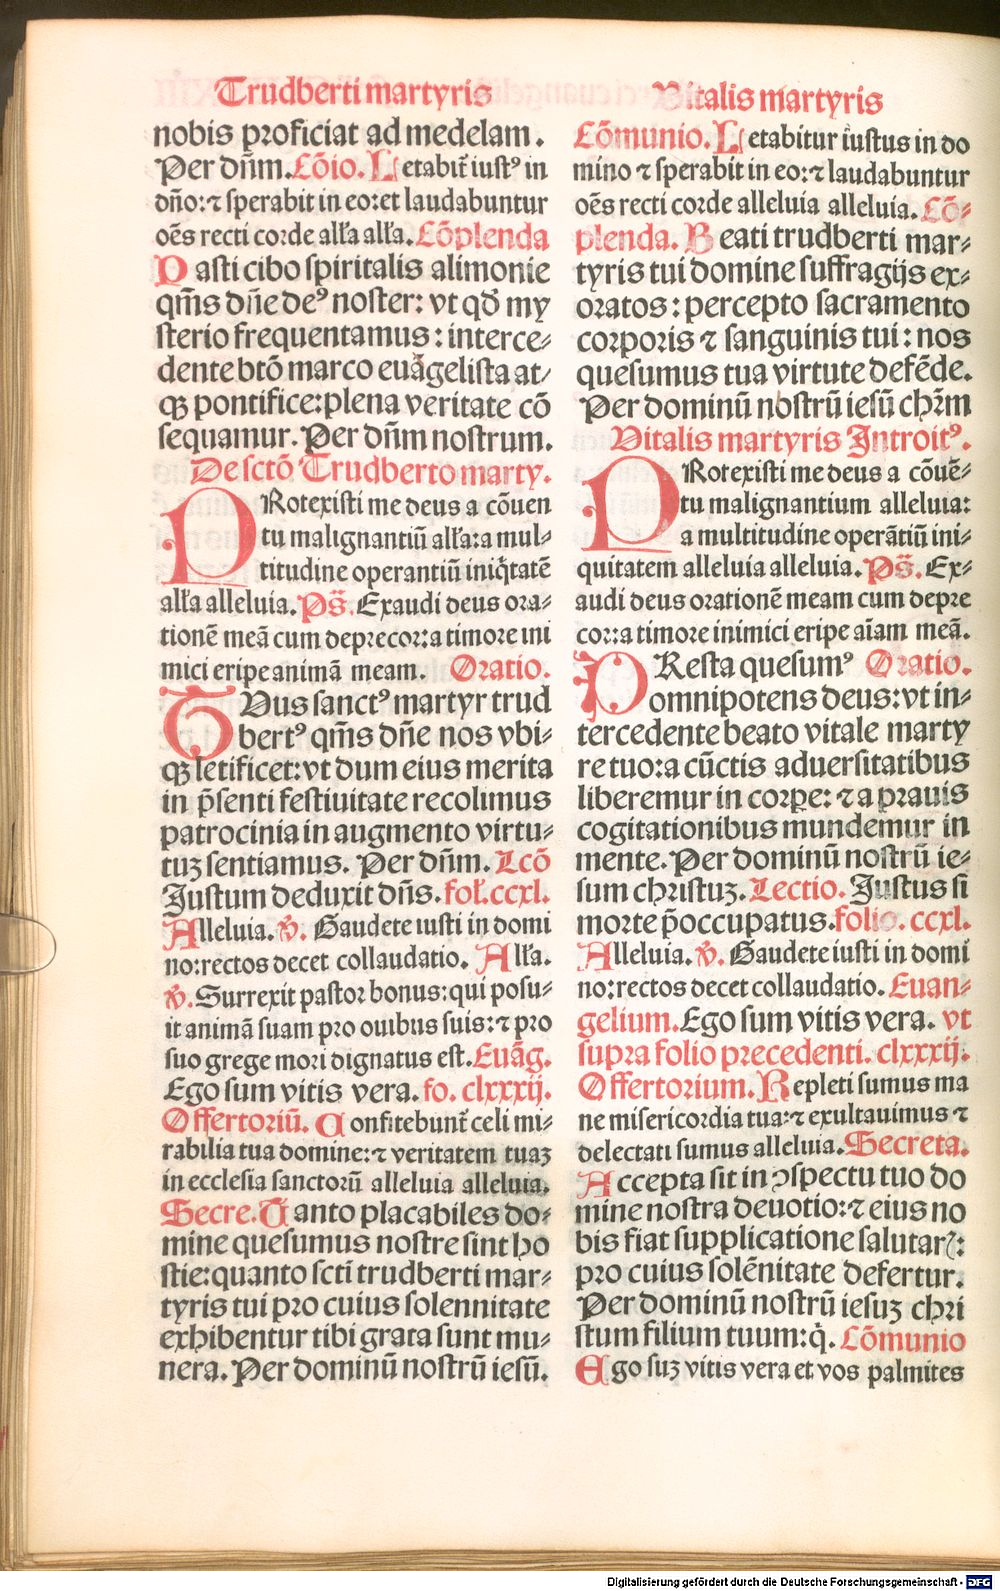 Trudberti martyris
nobis proficiat ad medelam.
Per dñm. Cõio. Letabit̃ iustꝰ in
dño: ⁊ sperabit in eo: et laudabuntur
oẽs recti corde alľa alľa. Cõplenda
Pasti cibo spiritalis alimonie
qm̃s dñe deꝰ noster: vt qď my
sterio frequentamus: interce⸗
dente btõ marco euãgelista at⸗
qꝫ pontifice: plena veritate cõ
sequamur. Per dñm nostrum.
De sctõ Trudberto marty.
PRotexisti me deus a cõuen
tu malignantiũ alľa: a mul⸗
titudine operantiũ iniq̃tatẽ
alľa alleluia. Ps̃. Exaudi deus ora⸗
tionẽ meã cum deprecor: a timore ini
mici eripe animã meam. Oratio.
TUus sanctꝰ martyr trud
bertꝰ qm̃s dñe nos vbi⸗
qꝫ letificet: vt dum eius merita
in p̃senti festiuitate recolimus
patrocinia in augmento virtu⸗
tuꝫ sentiamus. Per dñm. Lcõ
Justum deduxit dñs. fol. ccxl.
Alleluia. ℣. Gaudete iusti in domi
no: rectos decet collaudatio. Alľa.
℣. Surrexit pastor bonus: qui posu⸗
it animã suam pro ouibus suis: ⁊ pro
suo grege mori dignatus est. Euãg.
Ego sum vitis vera. fo. clxxxij.
Offertoriũ. Confitebunt̃ celi mi⸗
rabilia tua domine: ⁊ veritatem tuaꝫ
in ecclesia sanctorũ alleluia alleluia.
Secre. Tanto placabiles do⸗
mine quesumus nostre sint ho
stie: quanto scti trudberti mar⸗
tyris tui pro cuius solennitate
exhibentur tibi grata sunt mu⸗
nera. Per dominũ nostrũ iesũ.
Vitalis martyris
Cõmunio. Letabitur iustus in do
mino ⁊ sperabit in eo: ⁊ laudabuntur
oẽs recti corde alleluia alleluia. Cõ⸗
plenda. Beati trudberti mar⸗
tyris tui domine suffragijs ex⸗
oratos: percepto sacramento
corporis ⁊ sanguinis tui: nos
quesumus tua virtute defẽde.
Per dominũ nostrũ iesũ chr̃m
Vitalis martyris Introitꝰ.
PRotexisti me deus a cõuẽ⸗
tu malignantium alleluia:
a multitudine operãtiũ ini⸗
quitatem alleluia alleluia. Ps̃. Ex⸗
audi deus orationẽ meam cum depre
cor: a timore inimici eripe aĩam meã.
PResta quesumꝰ Oratio.
omnipotens deus: vt in⸗
tercedente beato vitale marty
re tuo: a cũctis aduersitatibus
liberemur in corꝑe: ⁊ a prauis
cogitationibus mundemur in
mente. Per dominũ nostrũ ie⸗
sum christuꝫ. Lectio. Justus si
morte p̃occupatus. folio. ccxl.
Alleluia. ℣. Gaudete iusti in domi
no: rectos decet collaudatio. Euan⸗
gelium. Ego sum vitis vera. vt
supra folio precedenti. clxxxij.
Offertorium. Repleti sumus ma
ne misericordia tua: ⁊ exultauimus ⁊
delectati sumus alleluia. Secreta.
Accepta sit in ꝯspectu tuo do
mine nostra deuotio: ⁊ eius no
bis fiat supplicatione salutarꝭ:
pro cuius solẽnitate defertur.
Per dominũ nostrũ iesuꝫ chri
stum filium tuum: q̃. Cõmunio
Ego suꝫ vitis vera et vos palmites
Digitalisierung gefördert durch die Deutsche Forschungsgemeinschaft - DFG